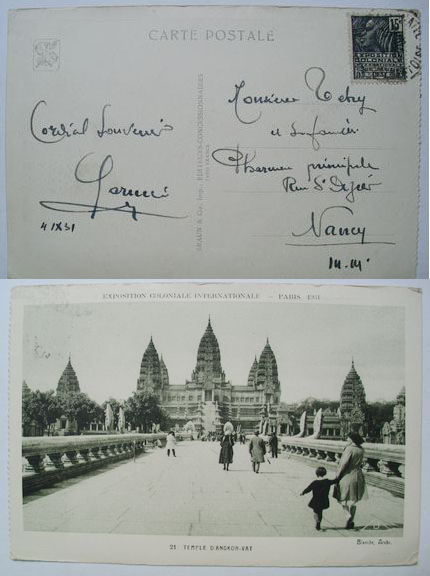 CARTE POSTALE
15c
EXPOSITION
COLONIALE
INTERNATIONALE
BRAUN & Cie, Imp. EDITEURS-CONCESSIONNAIRES
Cordial Souvenir
4 IX 31
Monsieur
et
Pharmacie principale
Rue St Dizier
Nancy
M.-M.
EXPOSITION COLONIALE INTERNATIONALE — PARIS 1931
21 TEMPLE D'ANGKOR-VAT
Blanche, Archt.